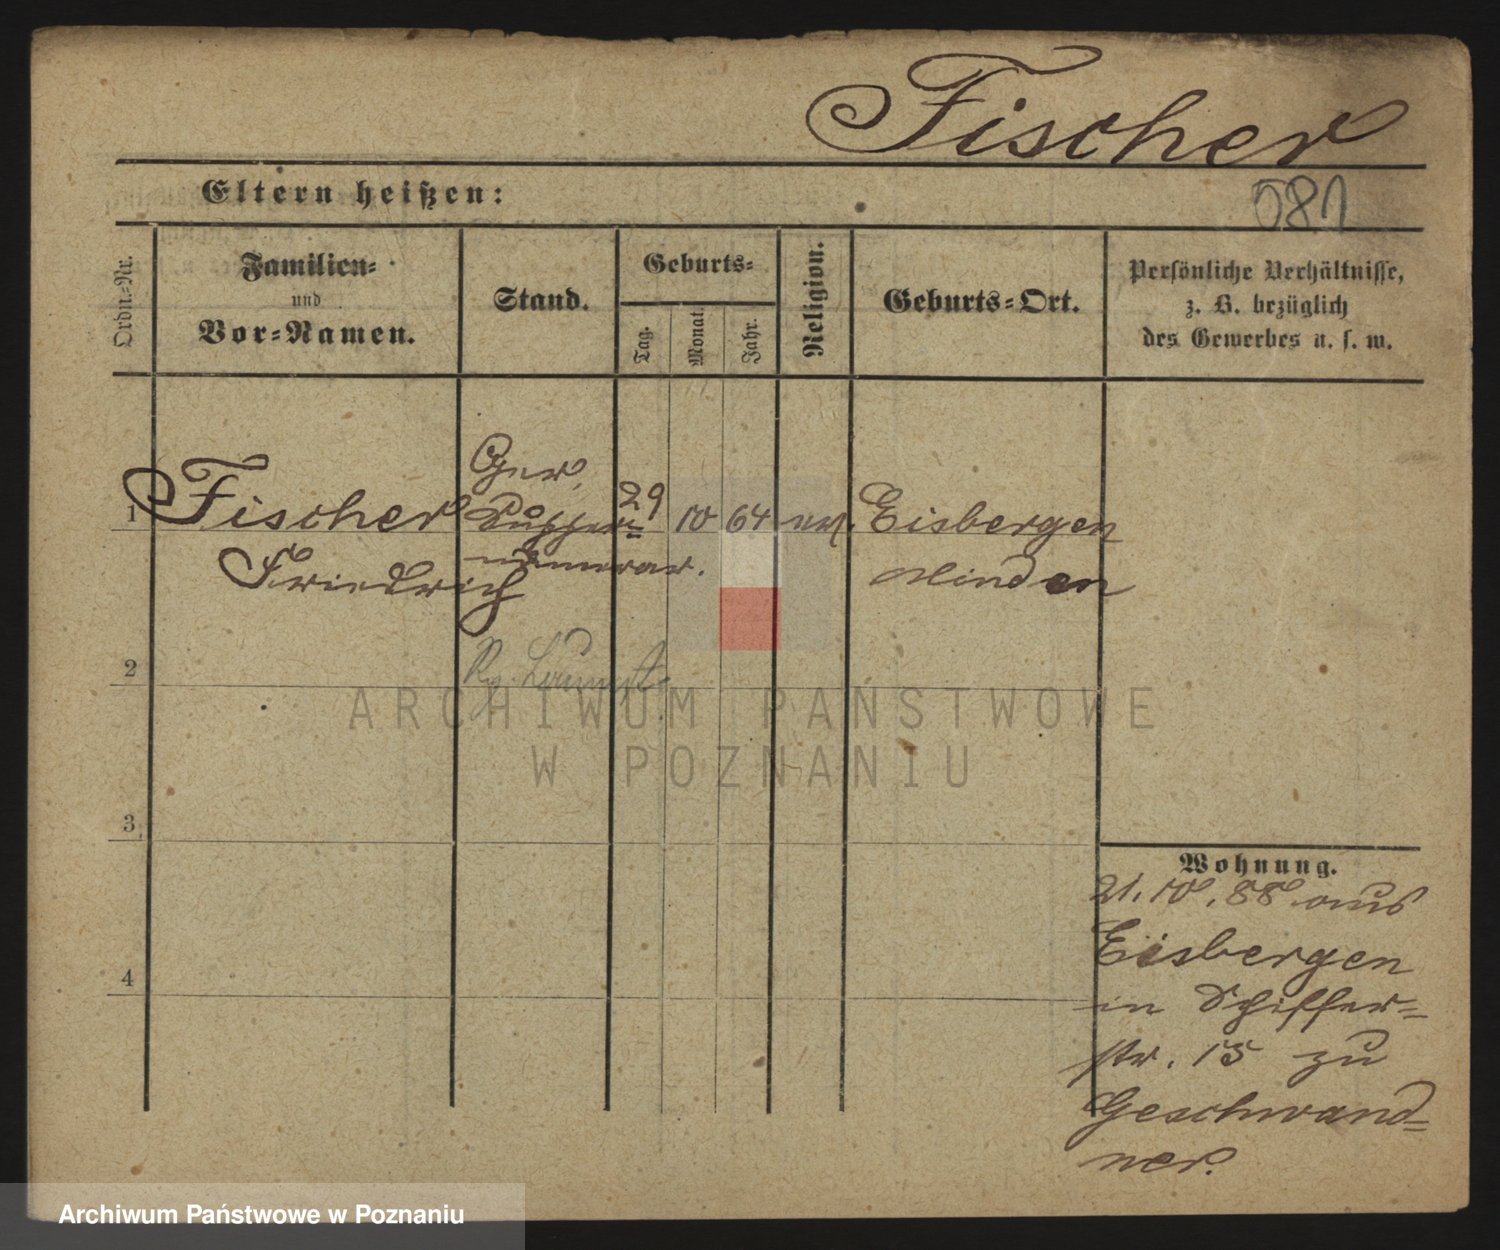 Fischer
Eltern heißen:
581
Ordn.-Nr.
Familien-
und
Vor-Namen.
Stand.
Geburts-
Tag.
Monat.
Jahr.
Religion.
Geburts-Ort.
Persönliche Verhältnisse,
z. B. bezüglich
des Gewerbes u. s. w.
1 Fischer Ger. Super- 29 10 64 Eisbergen
Friedrich numerar. Minden
2
3
4
ARCHIWUM PAŃSTWOWE
W POZNANIU
Wohnung.
21.10.88 aus
Eisbergen
in Schiffer-
str. 15 zu
Geschwand-
ner.
Archiwum Państwowe w Poznaniu